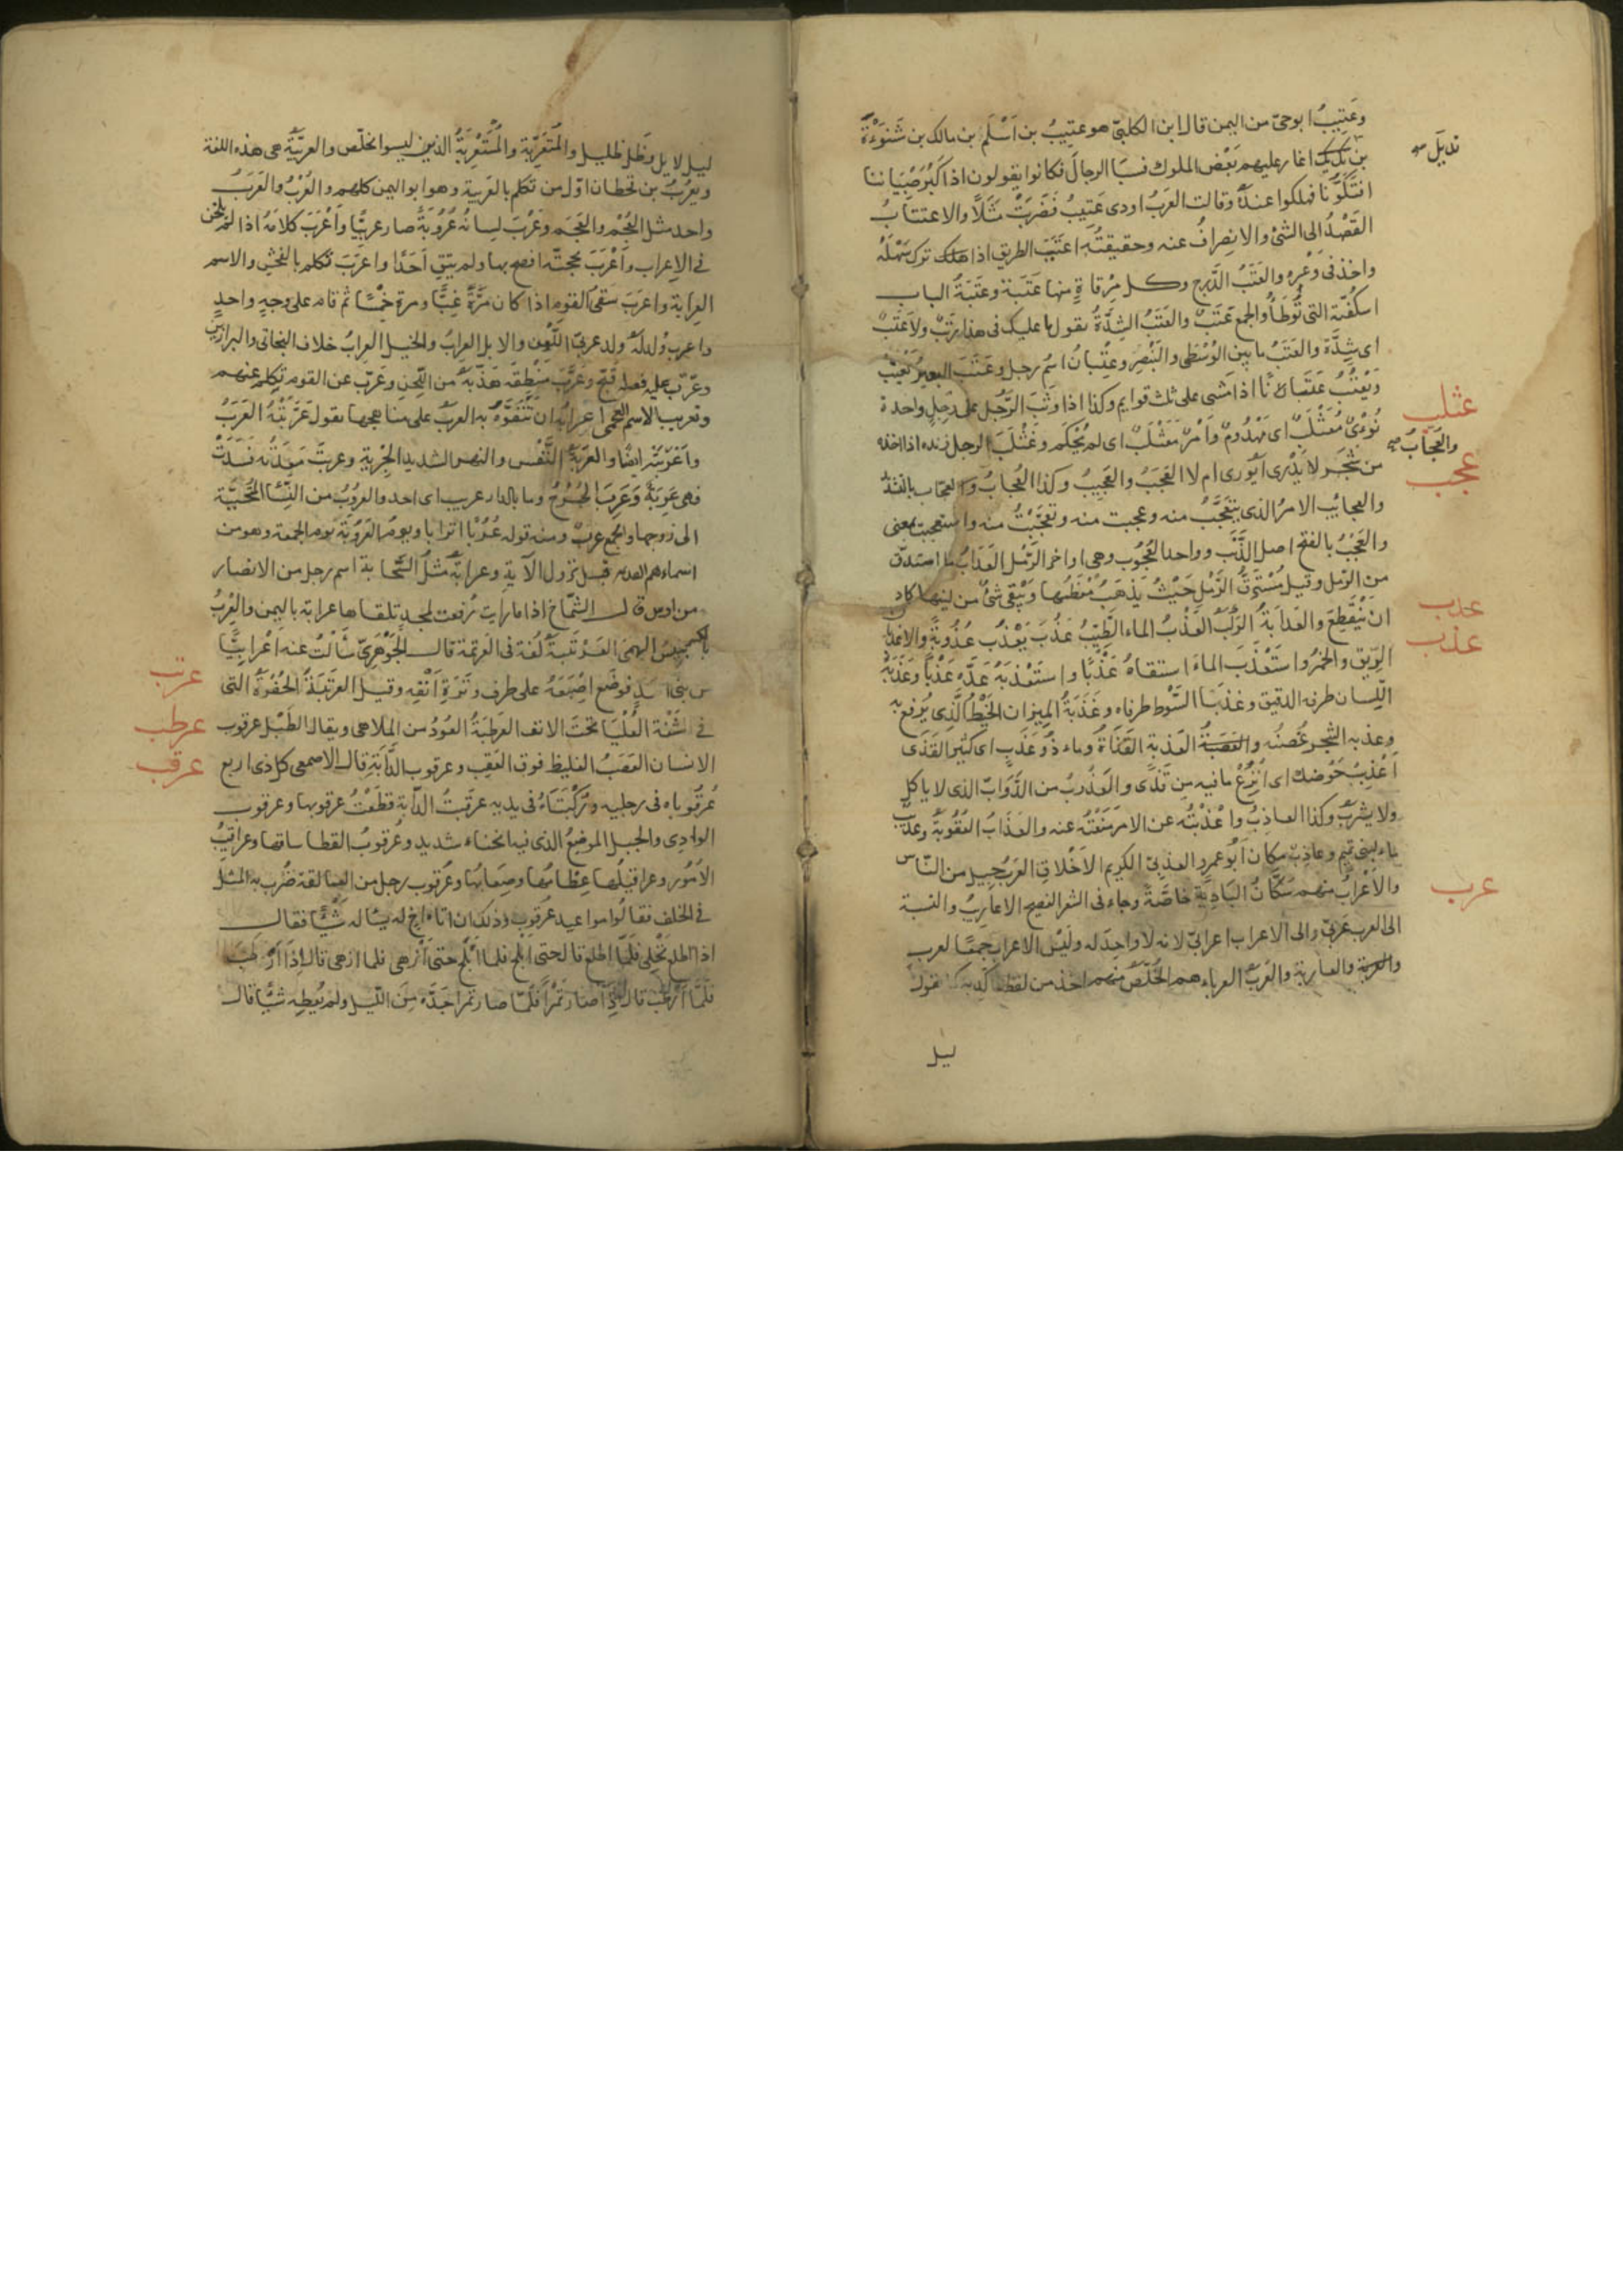 وعَتِيبُ ابوحىّ من اليمن قال ابن الكلبىّ هو عتيبُ بن اَسْلَم بن مالك بن شَنوءة
تديَل صح
بن تديل اغار عليهم بَعْض الملوك فسبا الرجالَ فكانوا يقولون اذا كَبُرَ صِبْياننا
افتكّونا فهلكوا عندهُ وقالت العَرَبُ اودى عَتِيبُ فضَربَتْ مثَلاً والاعتتابُ
القَصْدُ الى الشئ والانصِرافُ عنه وحقيقتُه اعتَتَب الطريق اذا ترك سَهْلَهُ
واخذ فى وَعْرِه والعَتَبُ الدَّرج وكل مِرْقاةٍ منها عَتَبَة وعَتَبَةُ الباب
اسكُفّته التى تُوطَأُ والجمع عَتَبٌ والعَتَبُ الشِدَّةُ يقول ما عليك فى هذا رَتَبٌ ولا عَتَبٌ
اى شِدَّة والعَتَبُ ما بين الوُسْطَى والبِنْصِرِ وعِتْبانُ اسمُ رجل وعَتَبَ البعيرُ يَعْتِبُ
ويَعْتُبُ عَتَبَانًا اذا مَشى على ثلث قوايم وكذا اذا وَثَبَ الرَّجُل على رِجلٍ واحدة
عثلب
نُؤْىٌ مُعَثْلَبٌ اى مَهْدُومٌ وَاَمْرٌ مُعَثْلَبٌ اى لم يُحْكَم وعَثْلَبَ الرجل زنده اذا اخذه
والعُجّابُ صح
من شجَر لا يَدْرى اَيُورى ام لا العَجَبُ والعَجِيبُ وكذا العُجابُ والعجّاب بالتشدّ
عجب
والعجايب الامرُ الذى يتعَجَّبُ منه وعجبت منه وتعجّبْتُ منه واستعجبت بمعنى
والعَجْبُ بالفتح اصل الذَّنَب وواحد العُجُوب وهى اواخر الرَّمْل العَدابُ ما استدقّ
من الرّمل وقيل مُسْتَرَقُّ الرَّمْل حَيْثُ يَذهَبُ مُعْظَمُها ويَبْقى شئٌ من لينها كاد
عدب
ان يَنْقَطِعَ والعَدابَةُ الرَّكَبُ العَذْبُ الماء الطّيّبُ عَذُبَ يَعْذُب عُذُوبةً والاعذبانِ
عذب
الرِّيق والخمرُ واستَعْذَبَ الماءَ استقاهُ عَذْبًا واستَعْذَبَهُ عَدَّه عَذْبًا وعَذَبَةُ
اللِّسان طرفه الدقيق وعذَبَا السَّوْط طرفاه وعَذَبَةُ المِيزان الخَيْطُ الَّذِى يُرفع به
وعذبه الشجر غُصْنُه والعَذِبة القَذَاةُ وماء ذُو عَذَبٍ اى كثِير القَذَى
اَعْذِبْ حَوْضك اى انْزَعْ ما فيه مِن قَذًى والعَذُوبُ من الدّوابّ الذى لا ياكل
ولا يشربُ وكذا العاذِبُ واَعْذَبْتُه عن الامر مَنَعْتُه عنه والعَذَابُ العُقُوبةُ
ماء لبنى تميم وعاذب مكان ابُو عمرو العذبىّ الكريم الاَخْلاق العَرَبُ جِيل من النّاس
عرب
والاَعْرابُ منهم سُكّانُ البَادِيَة خَاصَّةً وجاء فى الشعر الفصيح الاعاريبُ والنسبة
الى العرب عَربىّ والى الاعراب اعرابىّ لانه لا واحِدَ له ولَيْسَ الاعراب جمعًا لعرب
والعاربة والعَرَبُ العرباء هم الخُلَّصُ منهم اخذ من لفظه فاكّد به كما تقول
ليل
ليل لايل وظل ظليل والمتَعَرِّبة والمُسْتَعْرِبَةُ الذين ليسوا بخلّص والعربيّةُ هى هذه اللغة
ويعرُبُ بن قحطان اوّل من تكلم بالعَرَبية وهو ابو اليمن كلهم والعُرْبُ والعَرَبُ
واحد مثل العُجْم والعَجَم وعَرُبَ لسانُه عُرُوبَةً صار عربيًّا واَعْرَبَ كلامَهُ اذا لم يلحَن
فى الاِعراب واَعْرَبَ بحجتّه افصح بها ولم يتّقِ اَحَدًا واعرَبَ تكلم بالفحش والاسم
العِرابة واعرَبَ سَقىُ القوم اذا كان مرَّةً غِبًّا ومرة خِمْسًا ثم قام على وجهٍ واحدٍ
واعرب وُلد لهُ ولد عربىّ اللَّوْن والابل العِرابُ والخيل العِرابُ خلاف البخاتى والبراذين
وعَرّب عليه فعله قبّح وعَرَّب مَنْطِقَه هذّبَهُ من اللّحن وعَرّب عن القوم تكلم عنهم
وتعريب الاسم العجمى ان تَتَفَوَّهَ به العرب على مناهجها يقول عَرَّبَتْهُ العَرَبُ
واَعْرَبَتْه ايضًا والعَرَبَةُ النَّفْس والنهر الشديد الجِرْيةِ وعربتْ مَعِدَتُه فسَدتْ
فهى عَرِبَةٌ وعَرِبَ الجُرْحُ وما بالدار عريب اى احد والعروُبُ من النِّسَا المُتَحبِّبَة
الى زوجها والجمع عُرُبٌ ومنه قوله عُرُبًا اترابا ويوم العَرُوبَة يوم الجمعة وهو من
اسماءهم القديمه قبل نزول الآية وعرابَةُ مثل السَّحابة اسم رجل من الانصار
من اوس قال الشمّاخ اذا ما رايت رُفعت لمجدٍ تلقاها عرابة باليمين والعِرْبُ
بالكسر يَبِيسُ البهمَى العَرْتَبَةُ لُغة فى العَرْتمة قال الجَوْهَرِىّ سَأَلْتُ عنه اَعْرابيًّا
عرتب
من بنى اسد فوضَع اصْبَعَهُ على طرف وَتَرَةِ اَنْفِه وقيل العَرْتَبَةُ الحُفْرَةُ التى
عرطب
فى الشَّفَة العُلْيا تحْتَ الانف العَرْطَبَةُ العُوْدُ من الملاهى ويقال الطَّبْل عرقوب
عرقب
الانسان العَصَبُ الغليظ فوق العَقِب وعرقوب الدَّابّةِ قال الاصمعى كل ذى اربع
عُرقُوباه فى رجليه ورُكْبَتَاهُ فى يديه عرقَبْتُ الدّابة قطَعْتُ عرقوبها وعرقوب
الوادِى والجبل الموضِعُ الذى فيه انحناء شديد وعُرقوبُ القطا ساقها وعراقيبُ
الاُمُور وعراقيلُها عِظامُها وصِعَابُها وعُرقوب رجل من العمالقة ضُرِب به المثل
فى الخلف فقالُوا مواعيد عُرْقوب وذلك ان اتاه اخ له يسْاله شَيْئًا فقال
اذا اطلع نَخْلى فلَمّا اطلع قال حتى اَبْلَح فلما اَبْلَح حتى اَزهى فلما ازهى قال اِذَا اَرْطَبَ
فلَمَّا اَرْطَبَ قال اِذَا صَارَ تمْرًا فلمّا صار تمرا جَذَّه مِنَ اللّيل ولم يُعطِه شيئًا قال